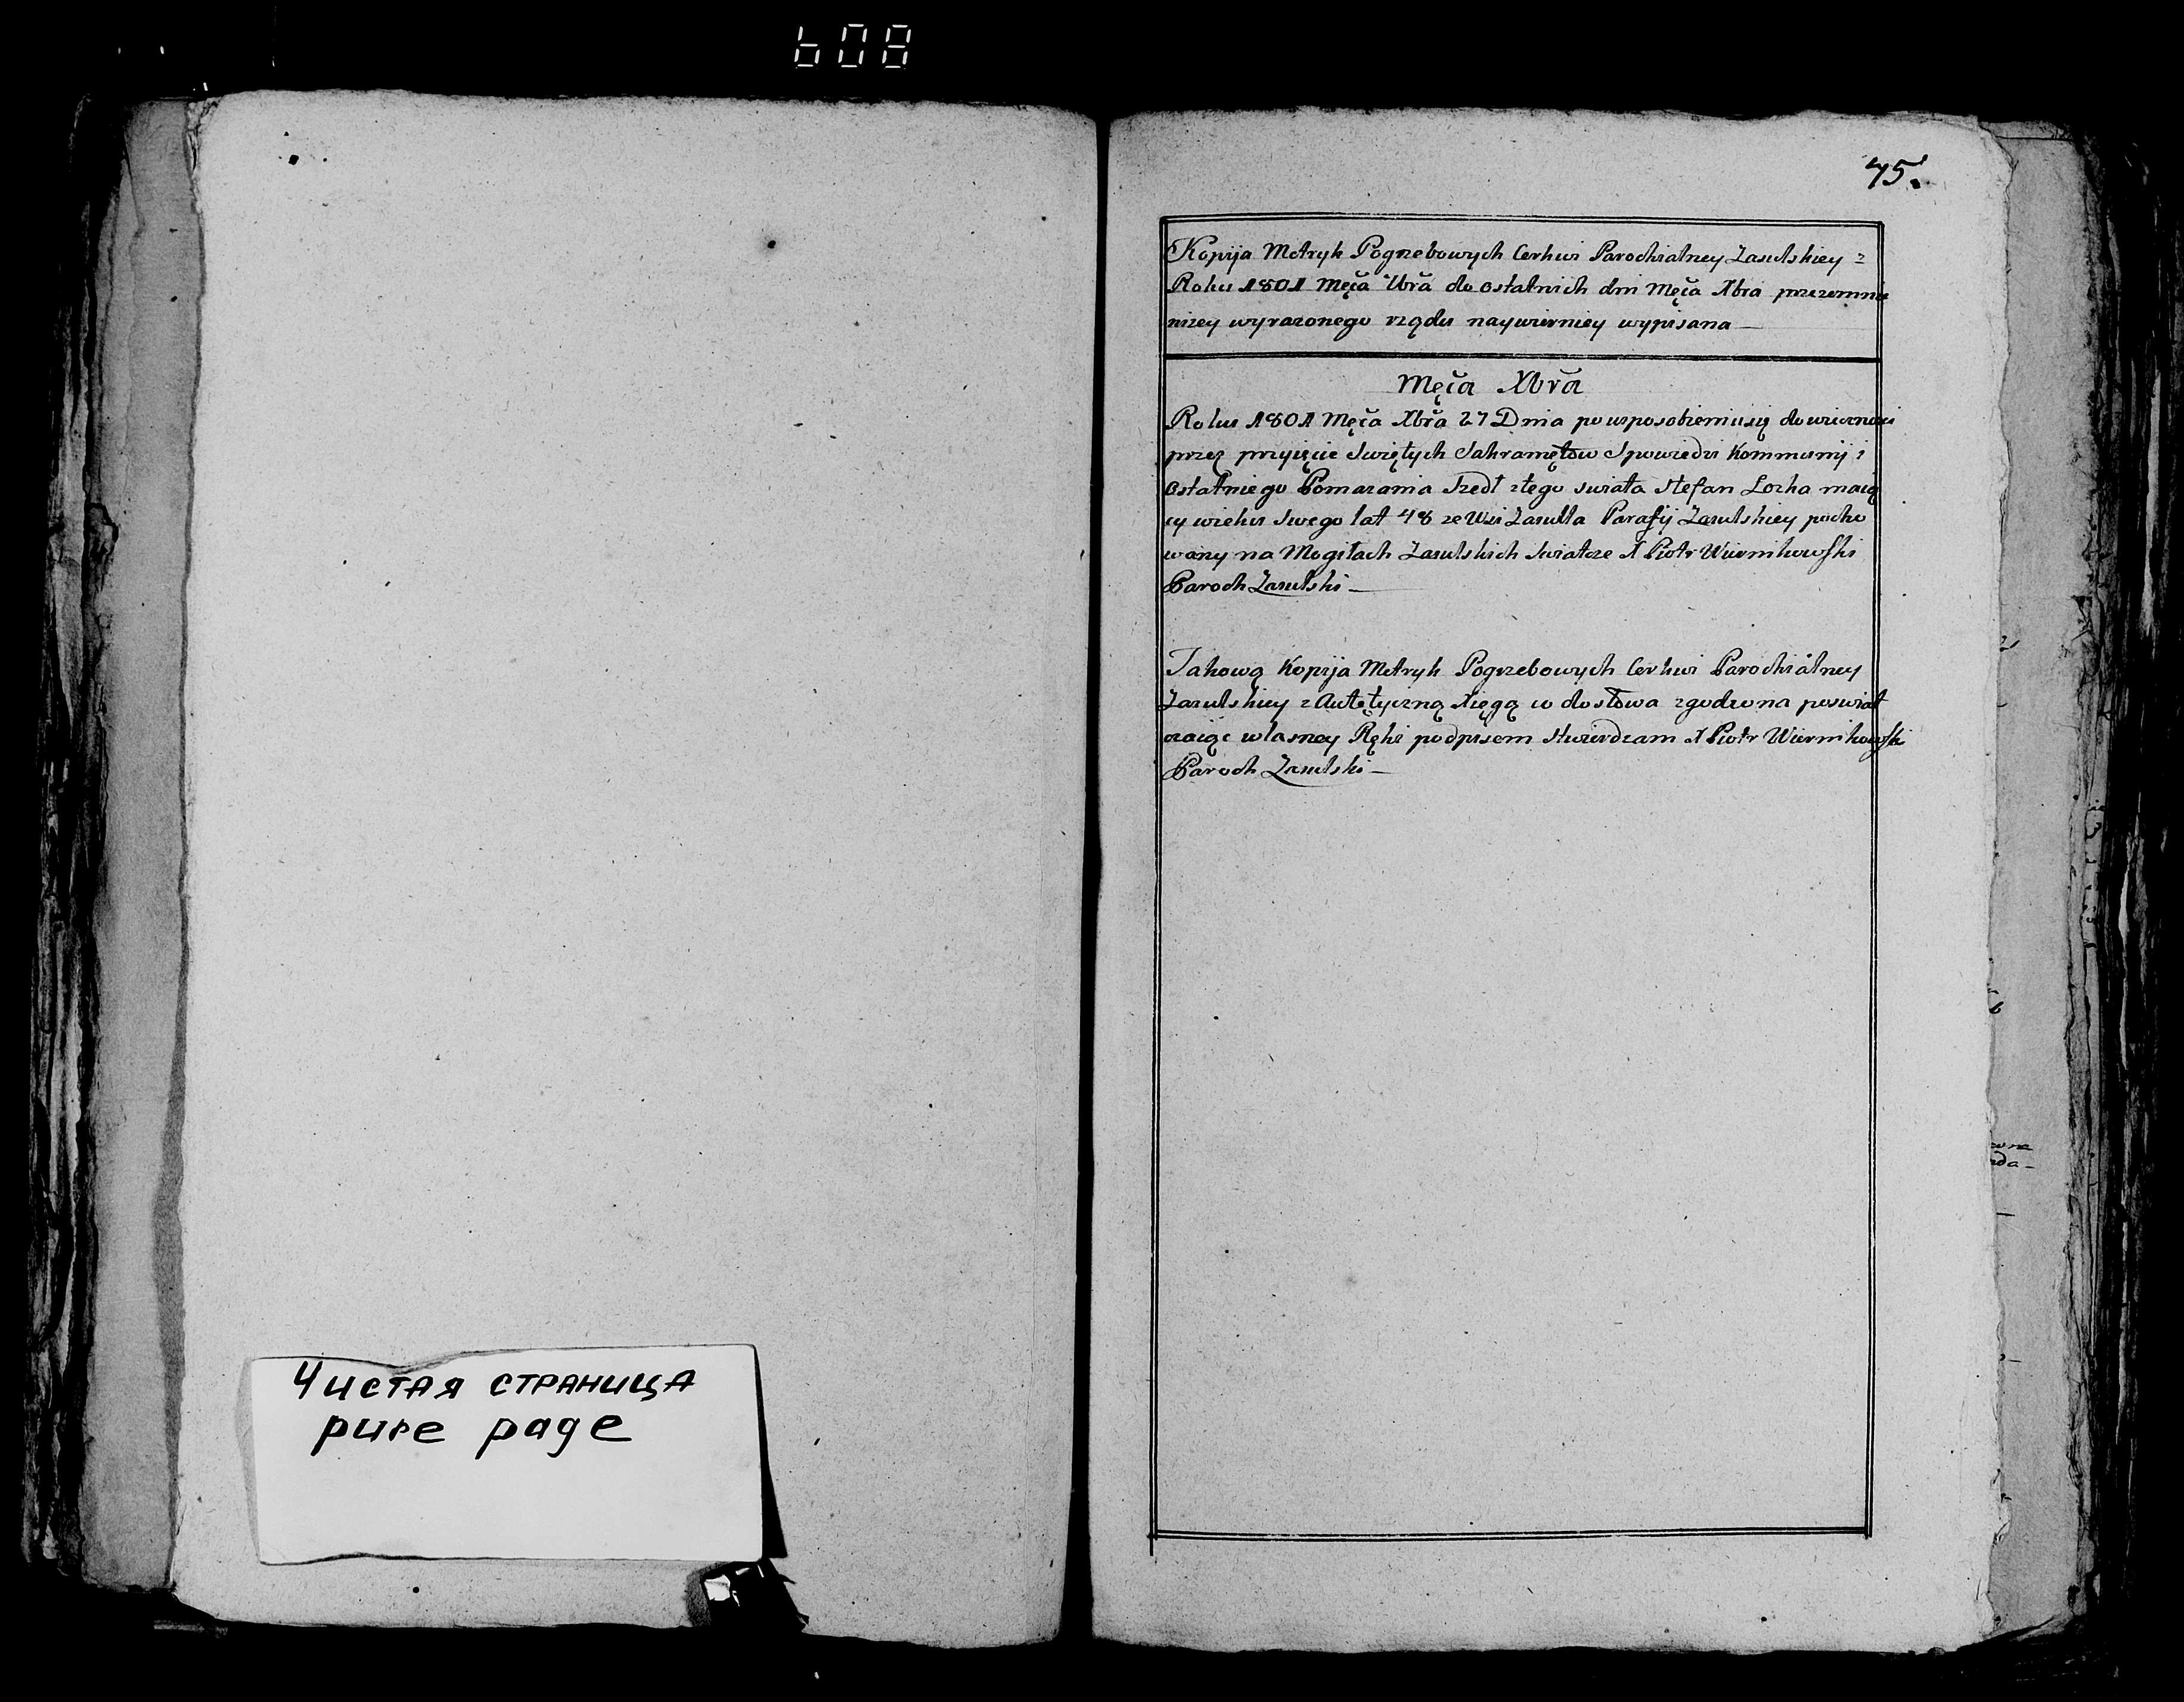 608
Чистая страница
pure page
75.
Kopija Metryk Pogrzebowych Cerkwi Parochialney Zasulskiey z
Roku 1801 Męca Xbra do ostatnich dni Męca Xbra przezemnie
niżey wyrażonego rządu naywierniey wypisana —
Męca Xbra
Roku 1801 Męca Xbra 27 Dnia po usposobieniu się do wiecznosci
przez przyięcie Swiętych Sakramętow Spowiedzi Kommunij i
ostatniego Pomazania Szedł z tego swiata Stefan Łozka maią
cy wieku Swego lat 48 ze Wsi Zasulla Parafij Zasulskiey pocho
wany na Mogiłach Zasulskich Swiatcze X Piotr Wiernikowski
Paroch Zasulski —
Takową Kopija Metryk Pogrzebowych Cerkwi Parochialney
Zasulskiey z Autętyczną Xięgą co do słowa zgodzona poswiat
czaiąc własney Ręki podpisem stwierdzam X Piotr Wiernikowski
Paroch Zasulski —